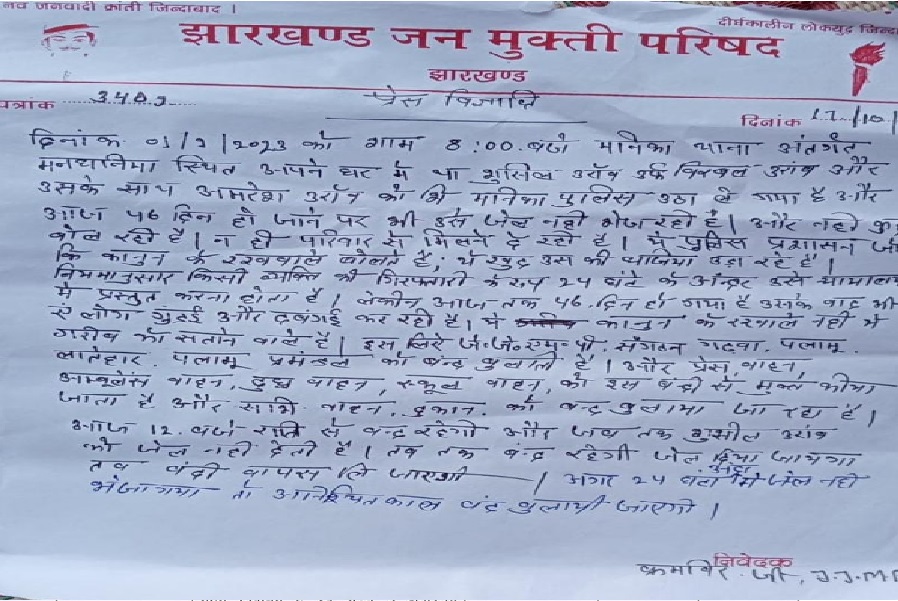 नव जनवादी क्रांती जिन्दाबाद ।
दीर्घकालीन लोकयुद्ध जिन्दा
झारखण्ड जन मुक्ती परिषद
झारखण्ड
पत्रांक
प्रेस विज्ञप्ति
दिनांक
दिनांक 01/9/2023 को शाम 8:00 बजे मनिका थाना अंतर्गत
स्थित अपने घर में था सुसिल उराँव उर्फ उरांव और
उसके साथ अमरेश उराँव को भि मनिका पुलिस उठा ले गया है और
आज 46 दिन हो जाने पर भी उसे जेल नही भेज रही है। और नही कु
बोल रही है। न ही परिवार से मिलने दे रही है। ये पुलिस प्रशासन जो
कि कानुन के रखवाले बोलते है, ये खुद उस की धज्जिया उड़ा रहे है।
नियमानुसार किसी व्यक्ति की गिरफ्तारी के 24 घंटे के अन्दर उसे न्यायालय
मे प्रस्तुत करना होता है। लेकीन आज तक 46 दिन हो गया है उसके बाद भी
ऐ लोग गुंडई और दबंगई कर रही है। ये कानुन के रखवाले नही ये
गरीब को सताने वाले है। इस लिऐ जे.जे.एम.पी. संगठन गढवा, पलामू,
लातेहार, पलामू प्रमंडल को बन्द बुलाती है। और प्रेस वाहन,
वाहन, दुध वाहन, स्कूल वाहन, को इस बंदी से मुक्त कीया
जाता है और सभि वाहन, दुकान, को बन्द बुलाया जा रहा है।
आज 12 बजे रात्रि से बन्द रहेगी और जब तक सुसील उरांव
को जेल नही देती है। तब तक बन्द रहेगी जेल दिया जायेगा
तब बंदी वापस लि जाएगी । अगर 24 घंटा के अंदर जेल नही
भेजा गया तो अनिश्चितकाल बंद बुलायी जाएगी ।
निवेदक
जी, J.J.M.P